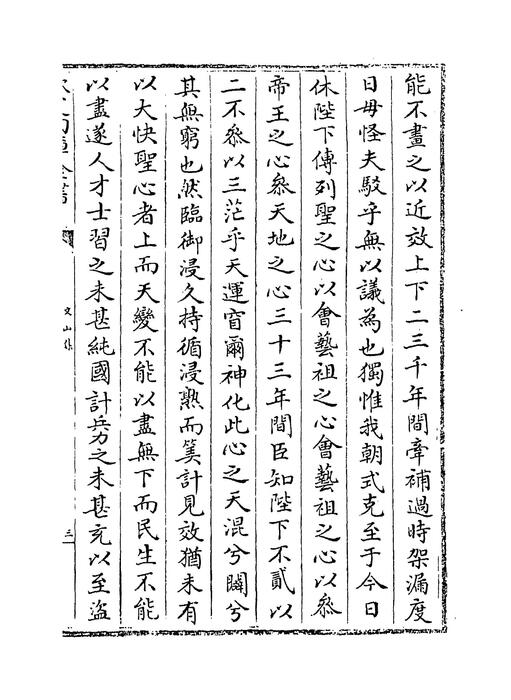 能不畫之以近效上下二三千年間牽補過時架漏度
日毋怪夫駁乎無以議為也獨惟我朝式克至于今日
休陛下傳列聖之心以會藝祖之心會藝祖之心以叅
帝王之心叅天地之心三十三年間臣知陛下不貳以
二不叅以三茫乎天運窅爾神化此心之天混兮闢兮
其無窮也然臨御浸久持循浸熟而筭計見效猶未有
以大快聖心者上而天變不能以盡無下而民生不能
以盡遂人才士習之未甚純國計兵力之未甚充以至盜
文山集
三